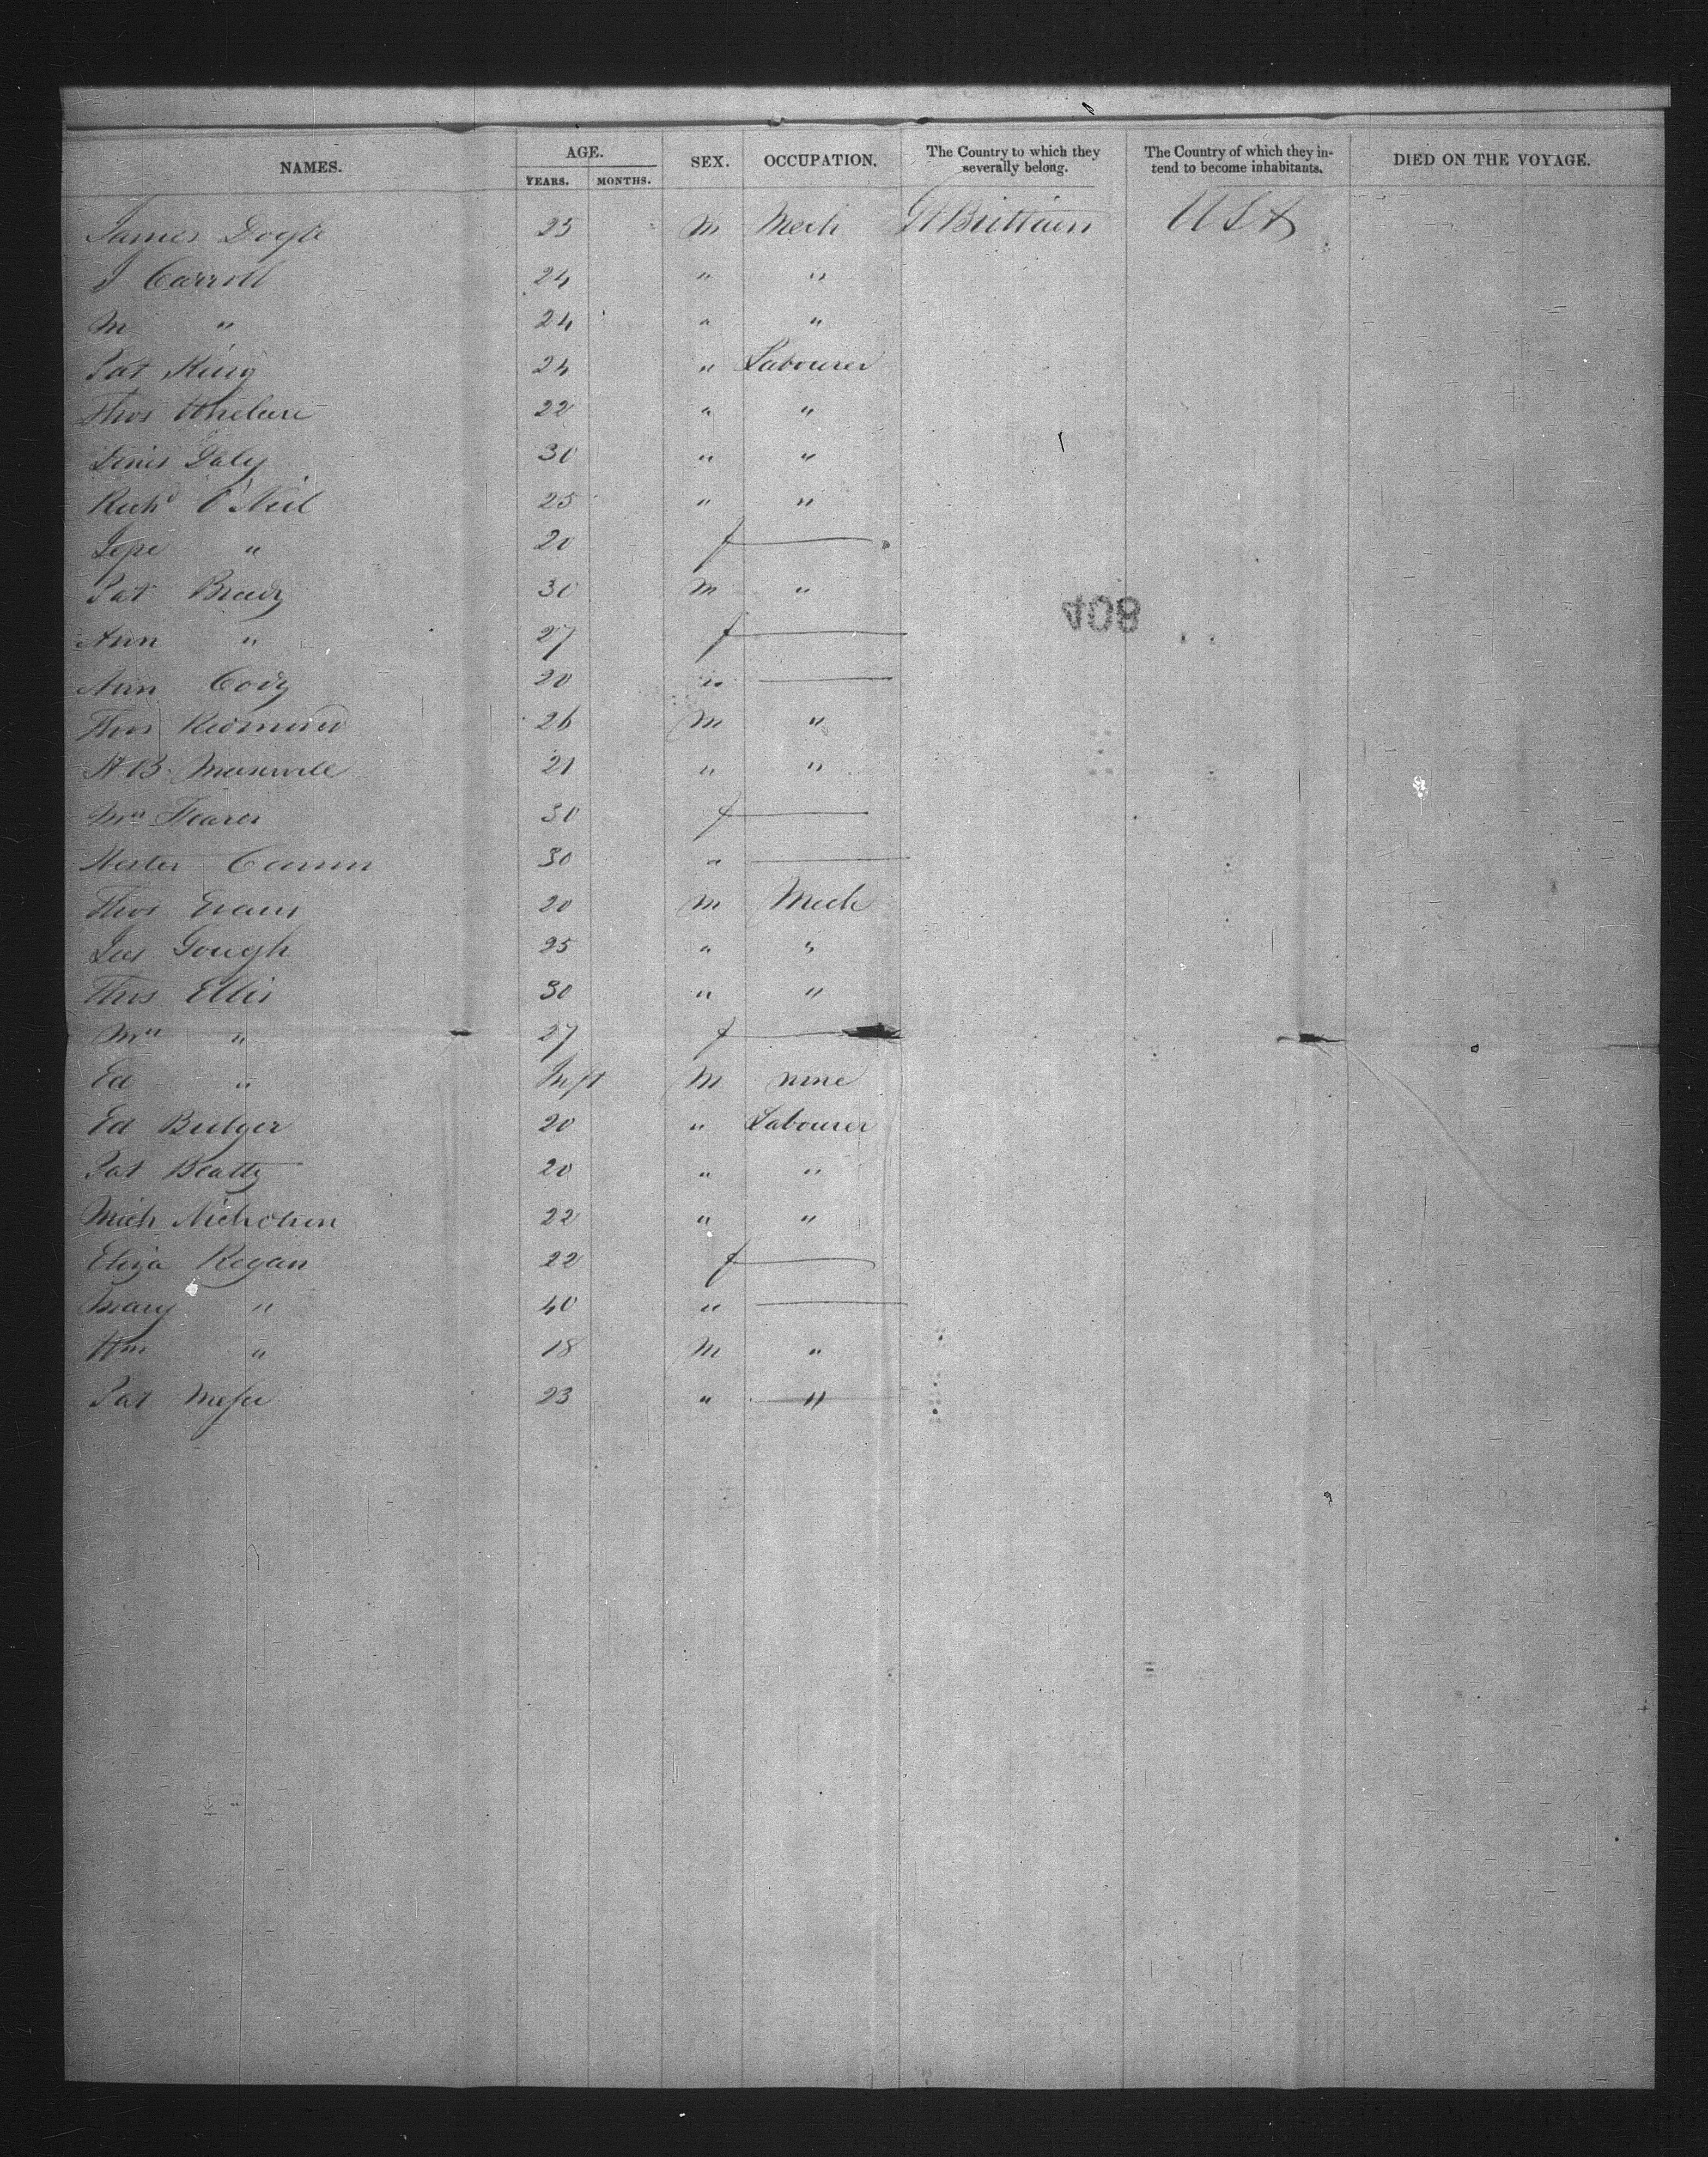 NAMES. AGE. SEX. OCCUPATION. The Country to which they severally belong. The Country of which they intend to become inhabitants. DIED ON THE VOYAGE.
YEARS. MONTHS.
James Doyle 25 M Mech Gt Brittain USA
J Carroll 24 " "
M " 24 " "
Pat King 24 " Labourer
Thos Whelan 22 " "
Denis Daly 30 " "
Richd O'Neil 25 " "
" 20 f
Pat Brady 30 M "
Ann " 27 f
Ann Cody 20 "
Thos Redmond 26 M "
21 " "
Mrs 30 f
Hester 30 "
Thos Evans 20 M Mech
Jas Gough 25 " "
Thos Ellis 30 " "
Mrs " 27 f
Ed " Inft M none
Ed Bulger 20 " Labourer
Pat Beatty 20 " "
Mich Nicholson 22 " "
Eliza Regan 22 f
Mary " 40 "
Wm " 18 M "
Pat 23 " "
408